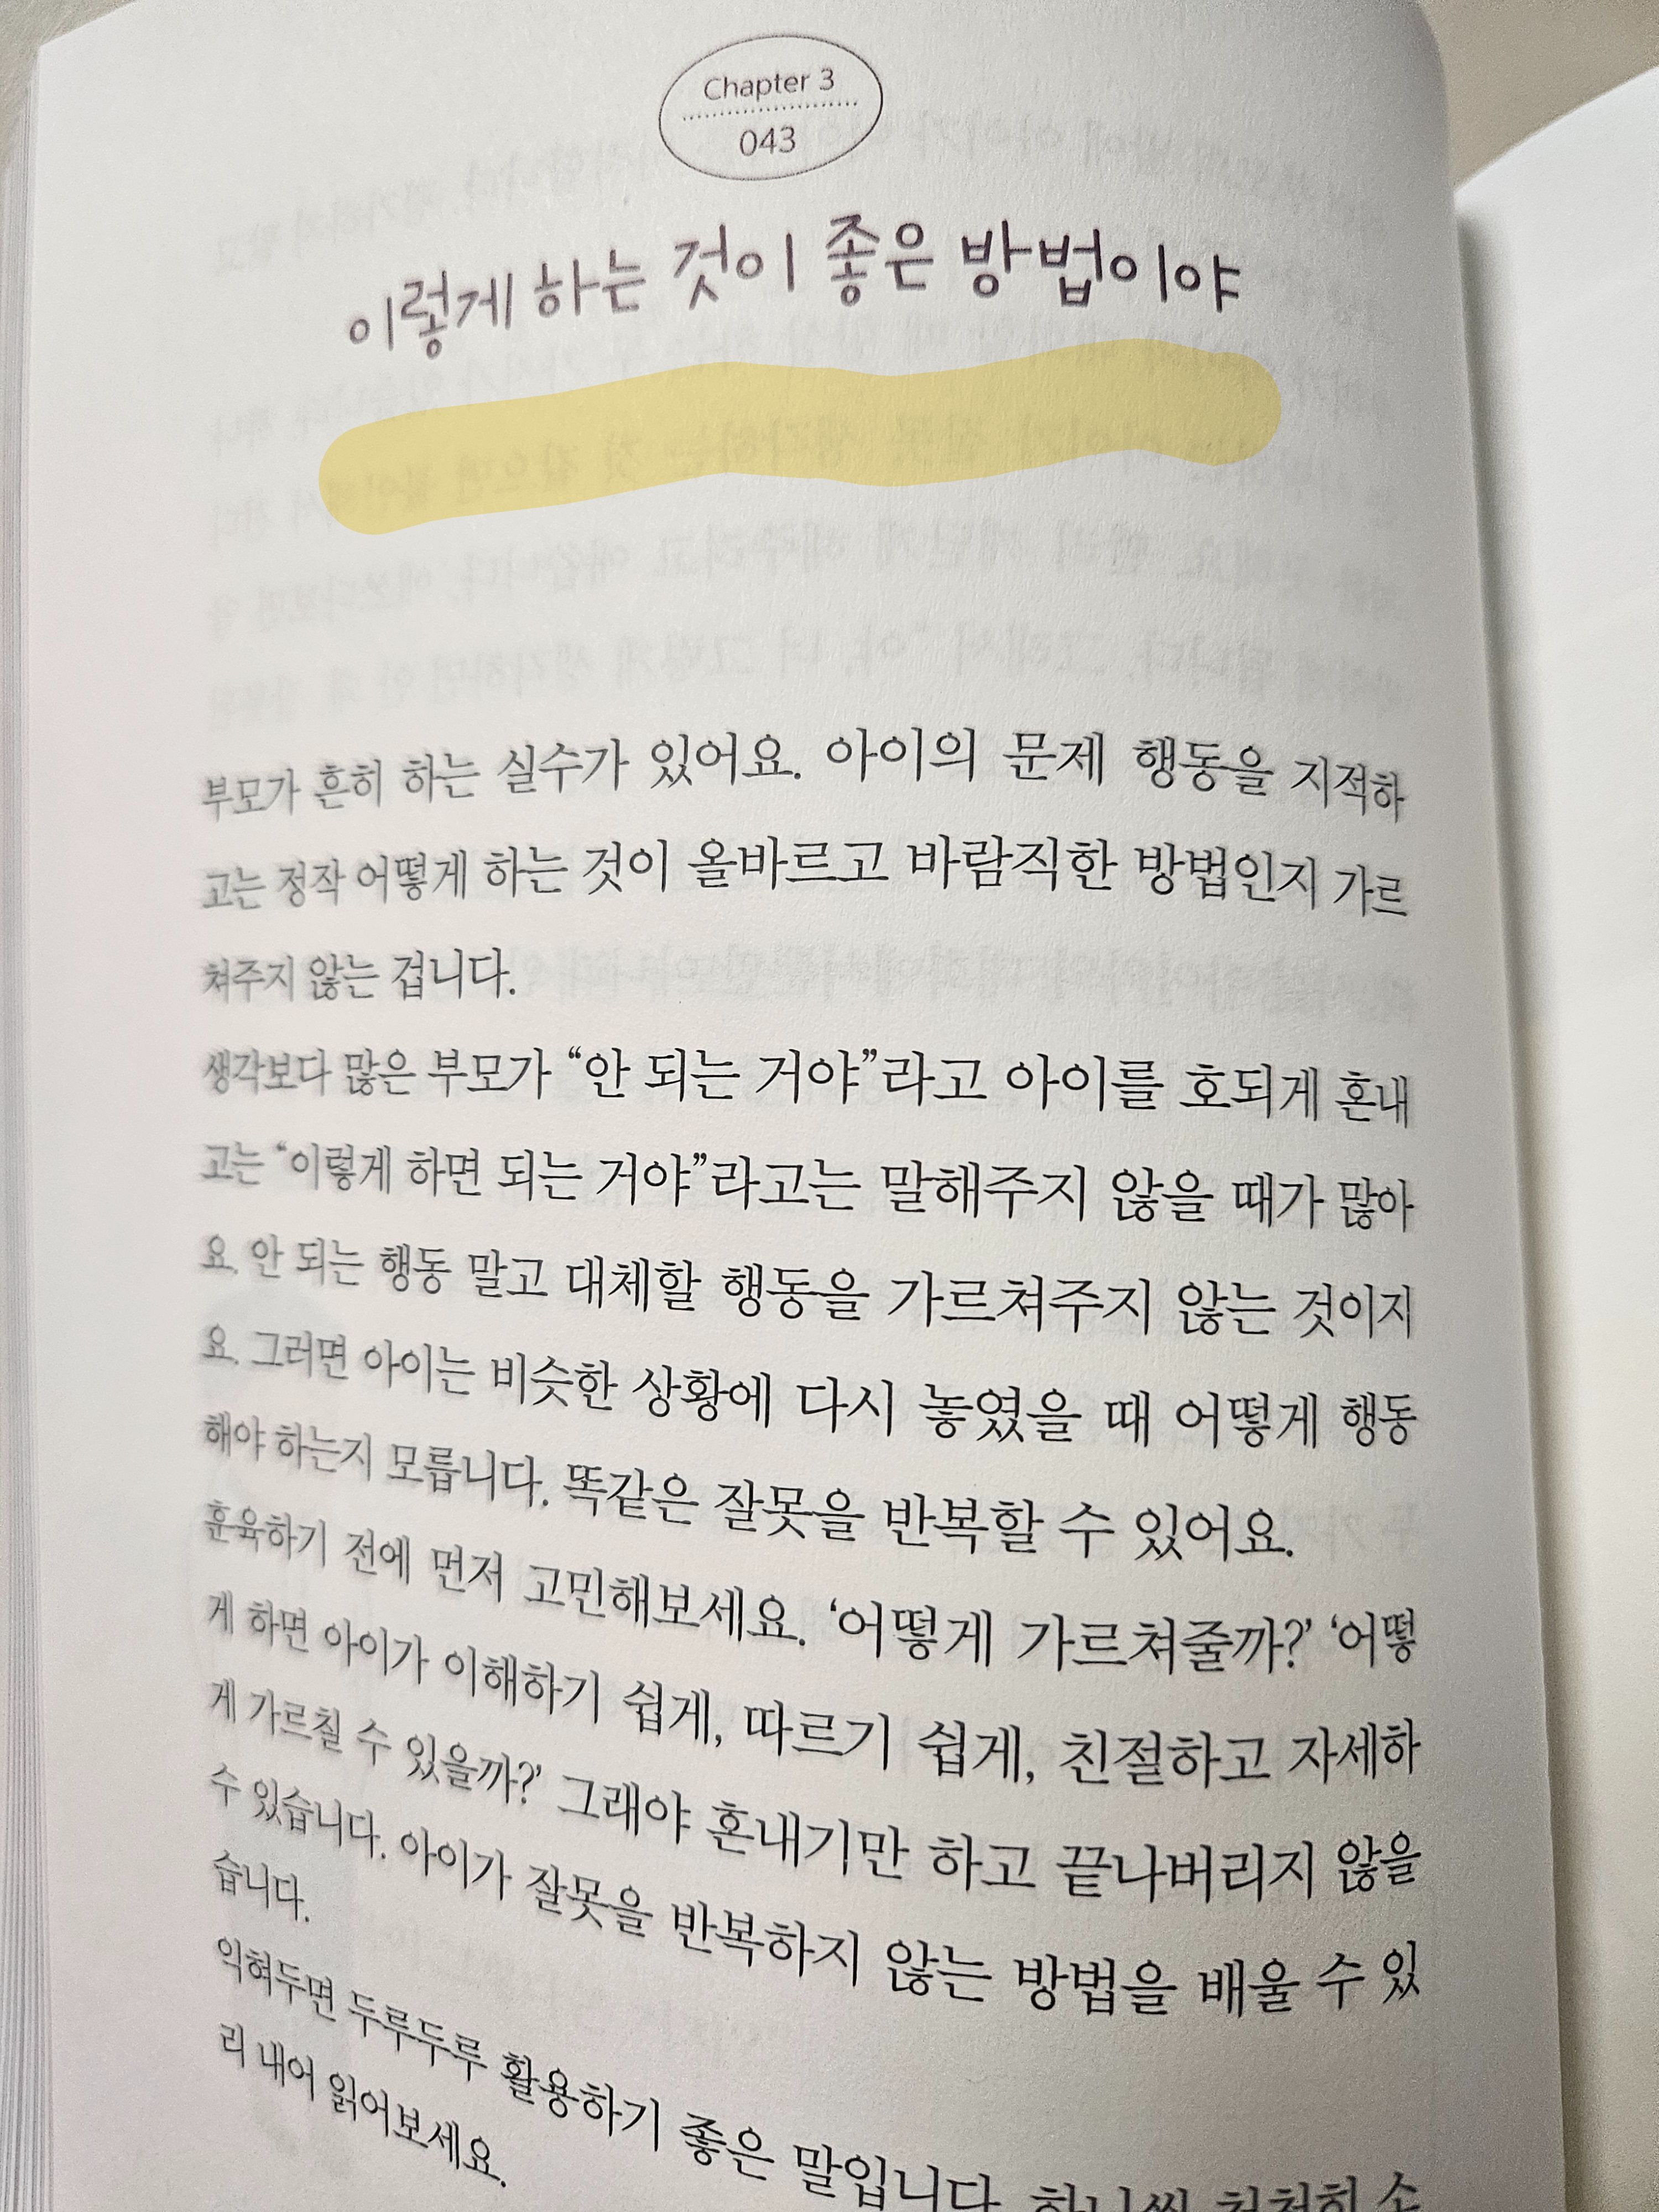 Chapter 3
043
이렇게 하는 것이 좋은 방법이야
부모가 흔히 하는 실수가 있어요. 아이의 문제 행동을 지적하
고는 정작 어떻게 하는 것이 올바르고 바람직한 방법인지 가르
쳐주지 않는 겁니다.
생각보다 많은 부모가 “안 되는 거야”라고 아이를 호되게 혼내
고는 “이렇게 하면 되는 거야”라고는 말해주지 않을 때가 많아
요. 안 되는 행동 말고 대체할 행동을 가르쳐주지 않는 것이지
요. 그러면 아이는 비슷한 상황에 다시 놓였을 때 어떻게 행동
해야 하는지 모릅니다. 똑같은 잘못을 반복할 수 있어요.
훈육하기 전에 먼저 고민해보세요. ‘어떻게 가르쳐줄까?’ ‘어떻
게 하면 아이가 이해하기 쉽게, 따르기 쉽게, 친절하고 자세하
게 가르칠 수 있을까?’ 그래야 혼내기만 하고 끝나버리지 않을
수 있습니다. 아이가 잘못을 반복하지 않는 방법을 배울 수 있
습니다.
익혀두면 두루두루 활용하기 좋은 말입니다. 하나씩 천천히 소
리 내어 읽어보세요.